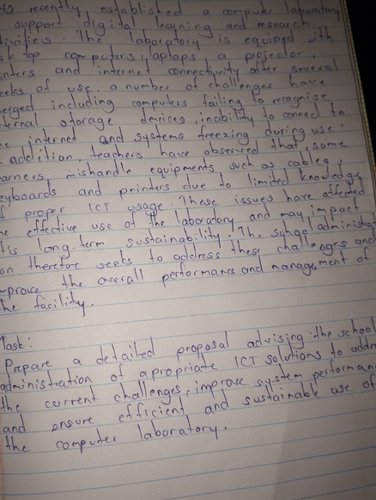 HS recently established a computer laboratory
support digital learning and research
tivities. The laboratory is equiped with
sk top computers, laptops a projector
inters and internet connectivity after several
eeks of use, a number of challenges have
erged including computers failing to recognise
ternal storage devices, inability to connect to
e internet and systems freezing during use.
addition, teachers have observed that some
arners mishandle equipments, such as cables,
eyboards and printers due to limited knowledge
f proper ICT usage. These issues have affected
he effective use of the laboratory and may impact
its long-term sustainability. The school administrat
on therefore seeks to address these challenges and
mprove the overall performance and management of
the facility.
Task:
Prepare a detailed proposal advising the school
administration of apropriate ICT solutions to addre
the current challenges, improve system performan
and ensure efficient and sustainable use of
the computer laboratory.